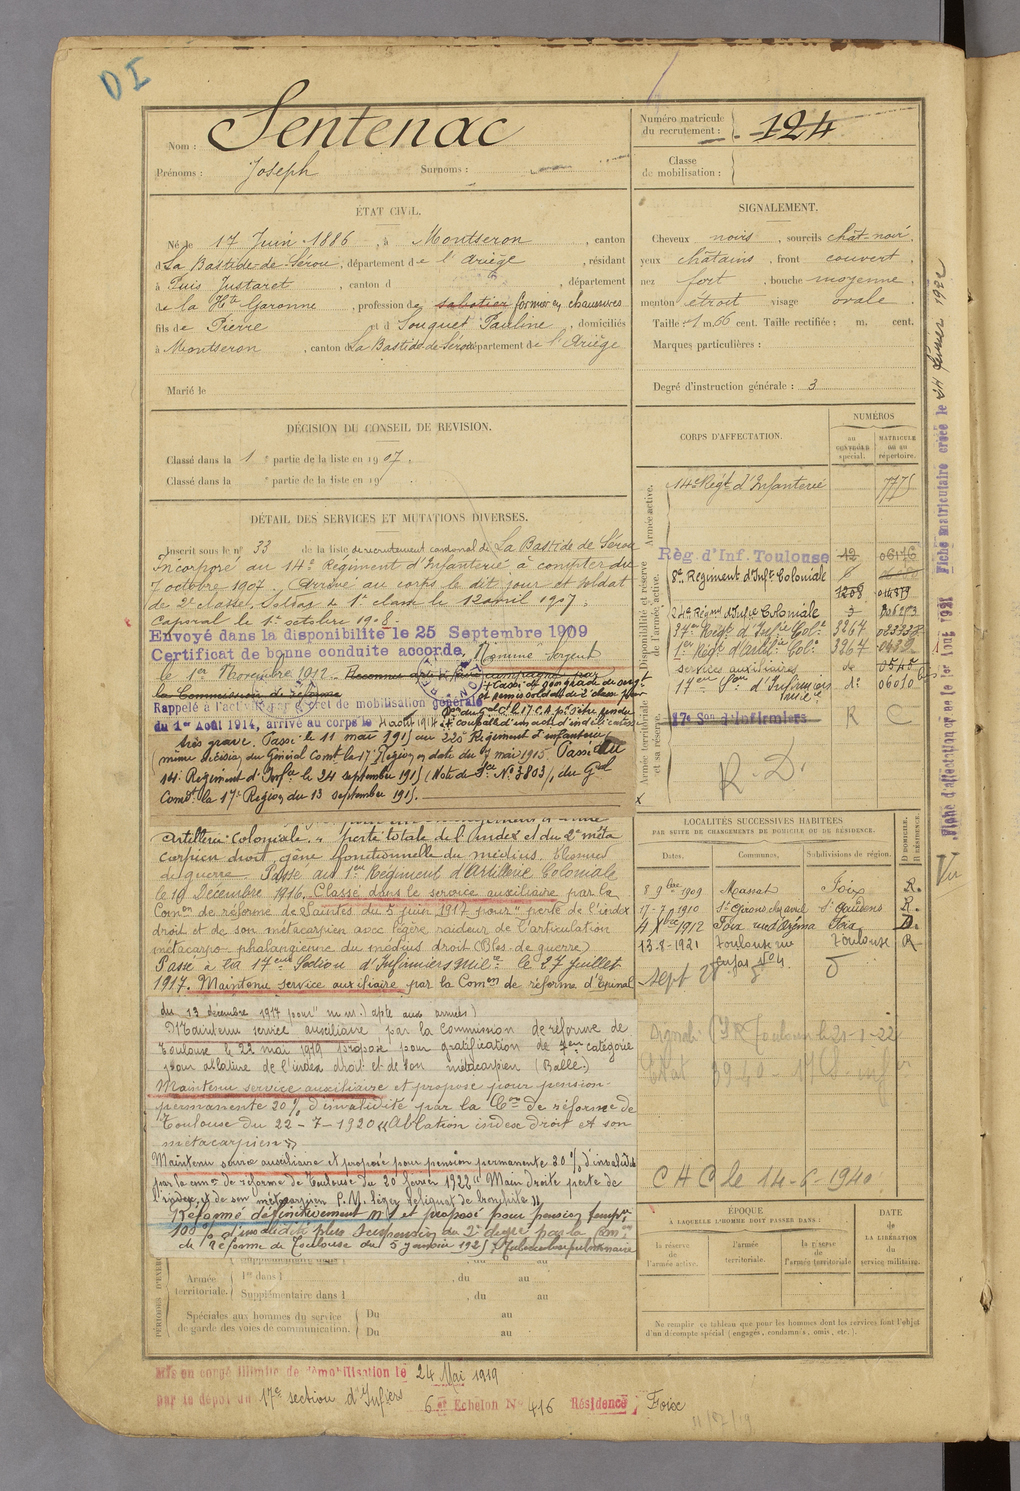 DI
Nom : Sentenac
Prénoms : Joseph Surnoms :
Numéro matricule du recrutement : 124
Classe de mobilisation :
ÉTAT CIVIL.
Né le 17 Juin 1886, à Montseron, canton
d La Bastide-de-Sérou, département de l'Ariège, résidant
à Puis Justaret, canton d , département
de la Hte Garonne, profession de sabotier formier en chaussures
fils de Pierre et d Souquet Pauline, domiciliés
à Montseron, canton d La Bastide de Sérou département de l'Ariège
Marié le
SIGNALEMENT.
Cheveux noirs, sourcils chât-noir,
yeux châtains, front couvert,
nez fort, bouche moyenne,
menton étroit visage ovale.
Taille : 1 m. 66 cent. Taille rectifiée : m. cent.
Marques particulières :
Degré d'instruction générale : 3
DÉCISION DU CONSEIL DE REVISION.
Classé dans la 1e partie de la liste en 1907.
Classé dans la e partie de la liste en 19
DÉTAIL DES SERVICES ET MUTATIONS DIVERSES.
Inscrit sous le n° 33 de la liste de recrutement cantonal de La Bastide de Sérou
Incorporé au 14e Régiment d'Infanterie à compter du
7 octobre 1907. Arrivé au corps le dit jour et soldat
de 2e classe. Soldat de 1e classe le 12 avril 1907.
Caporal le 1er octobre 1908.
Envoyé dans la disponibilité le 25 Septembre 1909
Certificat de bonne conduite accordé. Nommé Sergent
le 1er Novembre 1912.
la Commission de réforme
Rappelé à l'activité décret de mobilisation générale
du 1er Août 1914, arrivé au corps le 4 août 1914
très grave. Passé le 11 mai 1915 au 220e Régiment d'infanterie
(même décision du Général Comt la 17e Région en date du 7 mai 1915. Passé au
14e Régiment d'Infrie le 24 septembre 1915 (Note de Sce N° 3803/, du Gal
Comt la 17e Région du 13 septembre 1915.
Artillerie Coloniale. " perte totale de l'index et du 2e méta
carpien droit, gêne fonctionnelle du médius. Blessure
de guerre. Passé au 1er Régiment d'Artillerie Coloniale
le 19 Décembre 1916. Classé dans le service auxiliaire par la
Comon de réforme de Saintes du 5 juin 1917 pour " perte de l'index
droit et de son métacarpien avec légère raideur de l'articulation
métacarpo-phalangienne du médius droit (Bles. de guerre)
Passé à la 17eme Section d'Infirmiers Milre le 27 Juillet
1917. Maintenu service auxiliaire par la Comon de réforme d'Epinal
du 13 décembre 1917 pour " m.m.) apte aux armées)
Maintenu service auxiliaire par la Commission de réforme de
Toulouse le 22 mai 1919 proposé pour gratification de 7eme catégorie
pour ablature de l'index droit et de son métacarpien (Balle.)
Maintenu service auxiliaire et proposé pour pension
permanente 20% d'invalidité par la Con de réforme de
Toulouse du 22-7-1920 "Ablation index droit et son
métacarpien"
Maintenu service auxiliaire et proposé pour pension permanente 30% d'invalidité
par la comon de réforme de Toulouse du 20 février 1922 " Main droite perte de
l'index et de son métacarpien
Réformé définitivement N°1 et proposé pour pension tempre
100% d'invalidité plus suspension du 2e degré par la Comon
de Réforme de Toulouse du 5 janvier 1925 Tuberculose pulmonaire
Armée territoriale.
1re dans l , du au
Supplémentaire dans l , du au
Spéciales aux hommes du service de garde des voies de communication.
Du au
Du au
CORPS D'AFFECTATION.
NUMÉROS
au contrôle spécial.
MATRICULE ou au répertoire.
Armée active.
14e Régt d'Infanterie 7775
Disponibilité et réserve de l'armée active.
Règ. d'Inf. Toulouse 12 06176
8e Régiment d'Infie Coloniale 6
1208
24e Régim d'Infie Coloniale
37e Régt d'Infie Cole 3267
1er Régt d'Artill. Cole 3267
services auxiliaires do
17eme Son d'Infirmiers do 06010 bis
Armée territoriale et sa réserve
17e Son d'Infirmiers R C
R. D.
LOCALITÉS SUCCESSIVES HABITÉES
PAR SUITE DE CHANGEMENTS DE DOMICILE OU DE RÉSIDENCE.
Dates. Communes. Subdivisions de région. D DOMICILE. R RÉSIDENCE.
8 9bre 1909 Massat Foix R.
17-7-1910 St Girons St Gaudens R.
4 Xbre 1912 Foix Foix D.
13-8-1921 Toulouse rue Cujas N°4. Toulouse R
Sept 28
Toulouse 21-1-22
Etat 3940 - 17 S. infer
C H C le 14-6-1940
ÉPOQUE
A LAQUELLE L'HOMME DOIT PASSER DANS :
la réserve de l'armée active. l'armée territoriale. la réserve de l'armée territoriale.
DATE de LA LIBÉRATION du service militaire.
Ne remplir ce tableau que pour les hommes dont les services font l'objet
d'un décompte spécial (engagés, condamnés, omis, etc.).
Fiche d'affectation créée le 1er Aout 1921 Fiche matriculaire créée le 24 février 1922
Vu
Mis en congé illimité de démobilisation le 24 Mai 1919
par le dépôt du 17e section d'Infiers 6e Echelon N° 416 Résidence, Foix